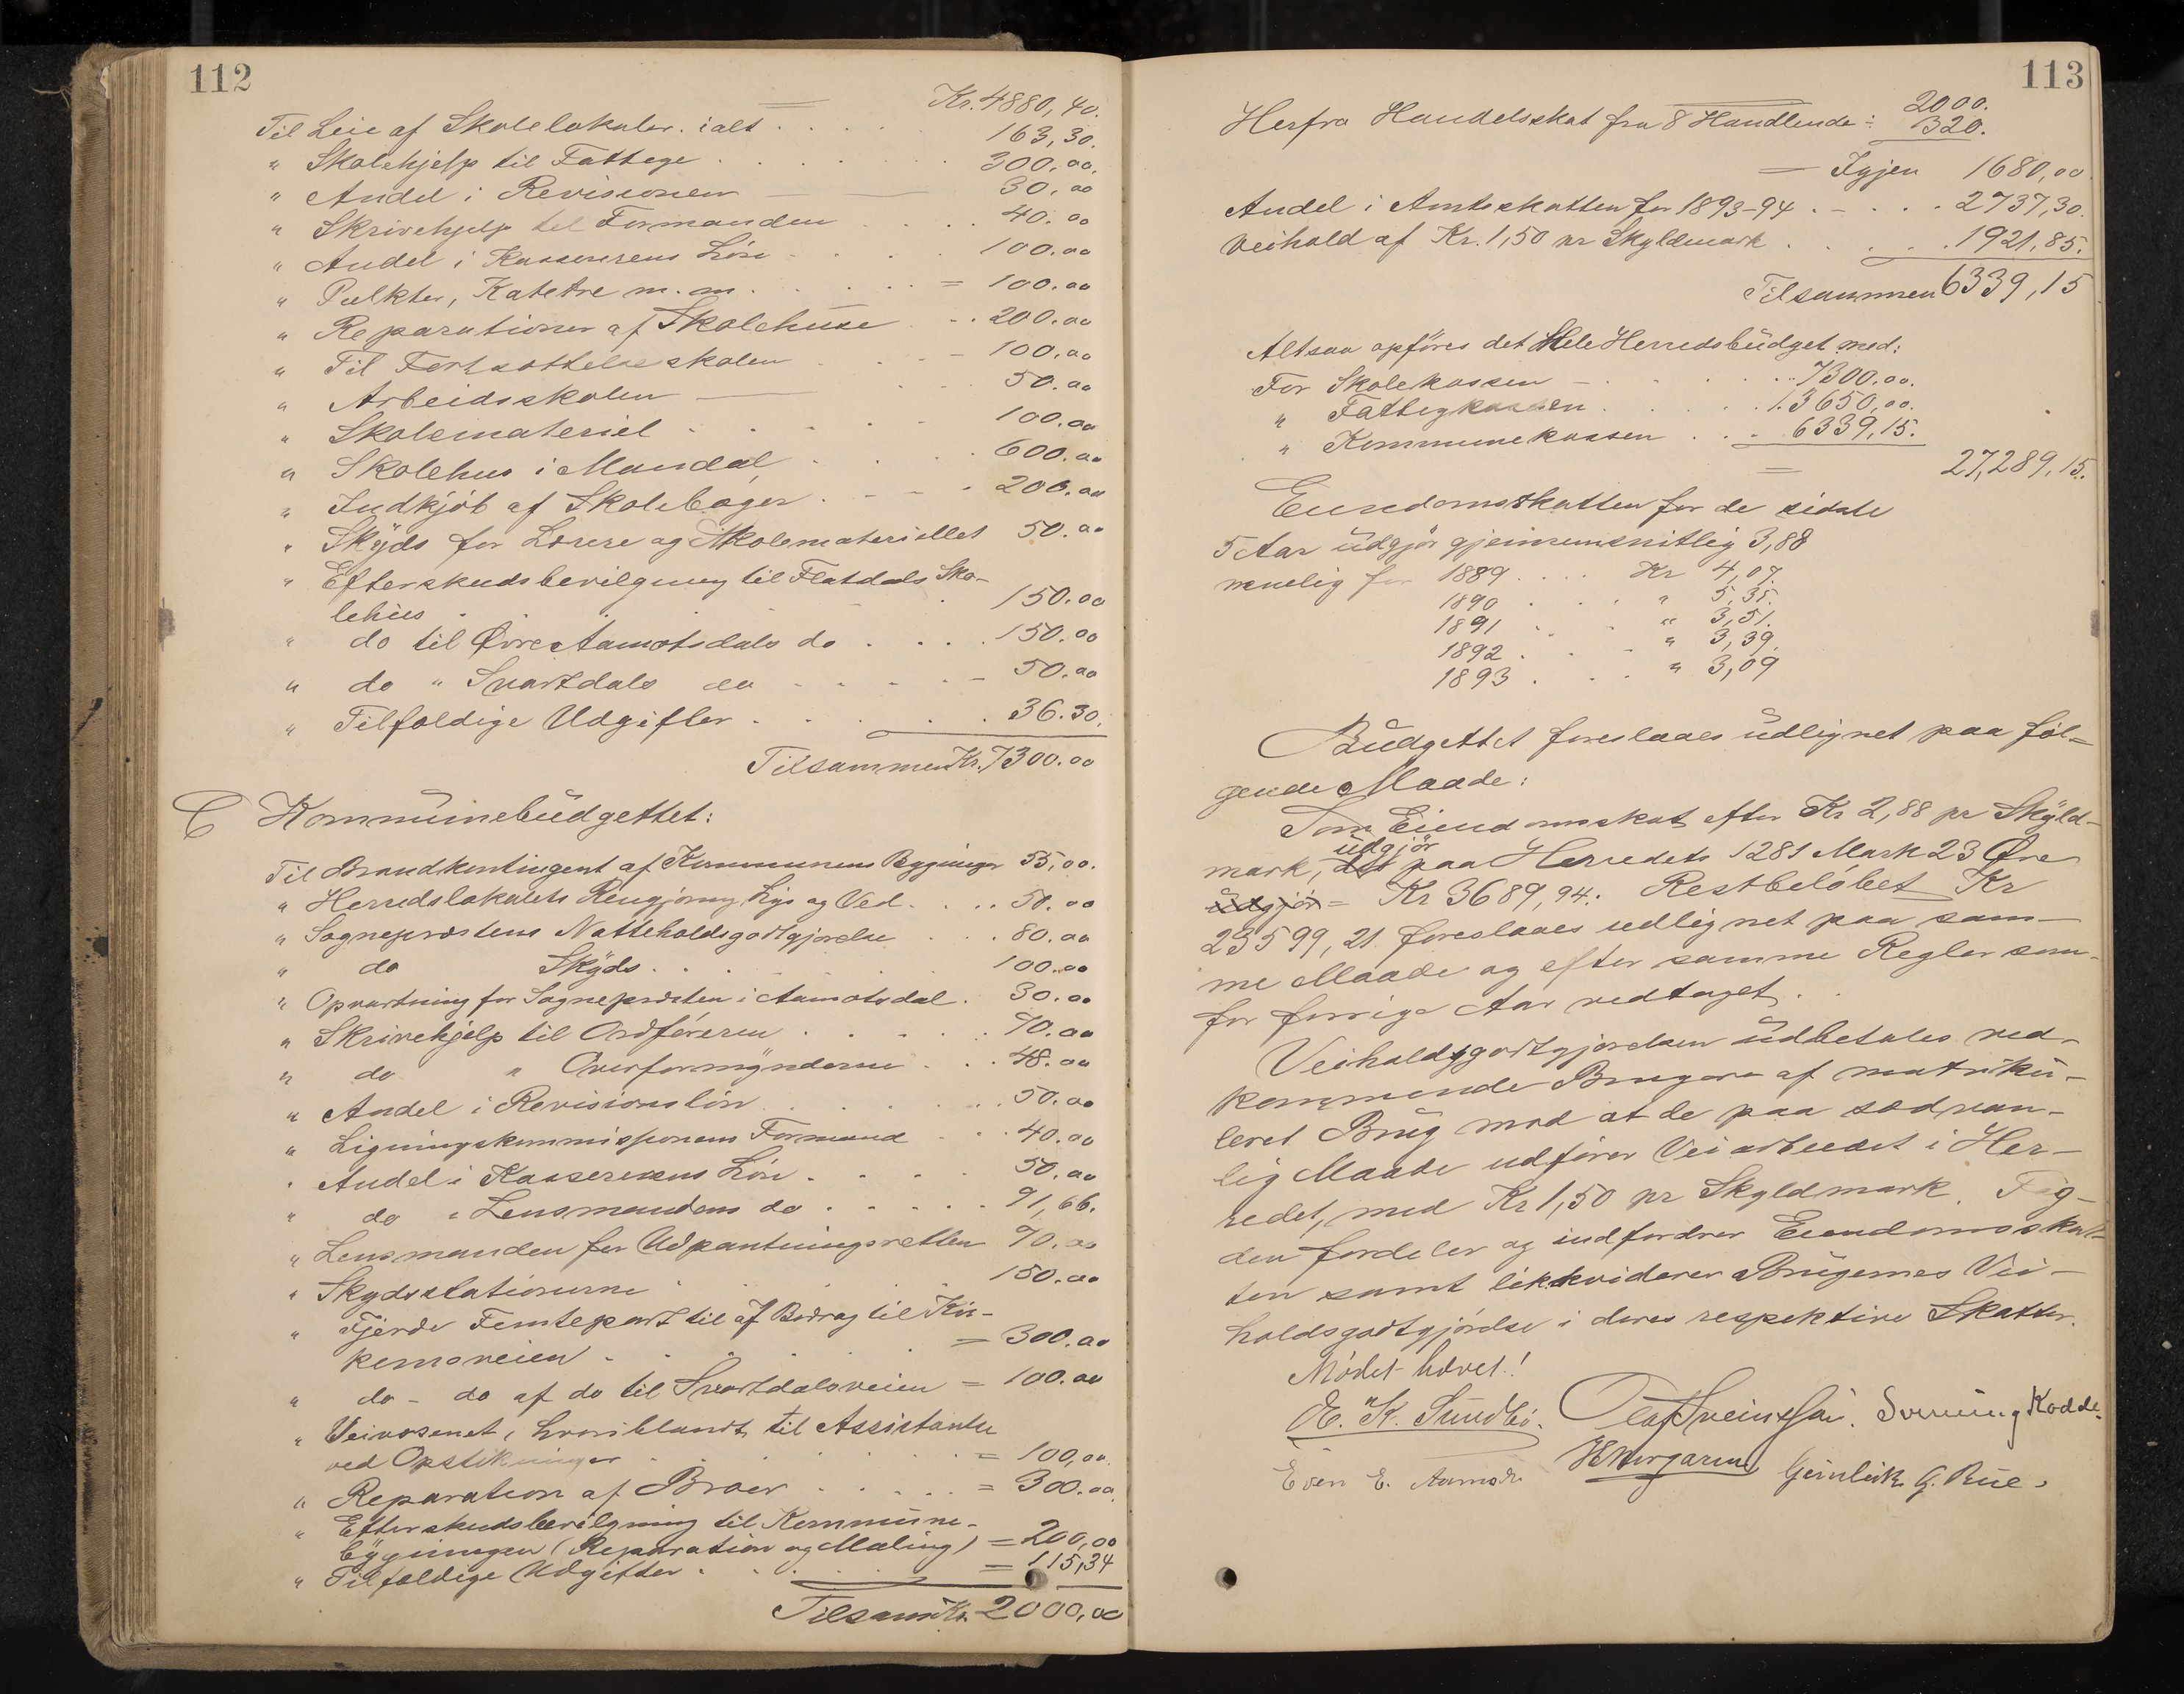 112
Kr. 4880,40.
Til Leie af Skolelokaler. ialt . . . . 163,30.
" Skolehjelp til Fattige . . . . 300.00.
" Andel i Revisionen 30.00
" Skrivehjelp til Formanden . . . 40.00
" Andel i Kassererens Løn . . . . 100.00
" Pulkter, Katetre m.m. . . . . = 100.00
" Reparationer af Skolehuse . . . 200.00
" Til Fortsættelsesskolen . . . 100.00
" Arbeidsskolen . . 50.00
" Skolemateriel . . . . . 100.00
" Skolehus i Mandal . . . . 600.00
" Indkjöb af Skoleböger . . . . 200.00
" Skyds for Lærere og Skolemateriellet 50.00
" Efterskudsbevilgning til Flatdals Sko-
lehus . . . . 150.00
" do til Øvre Aamotsdals do . . . . 150.00
" do " Svartdals do . . . . . 50.00
" Tilfældige Udgifter . . . . . 36.30.
Tilsammen Kr. 7300.00
C Kommunebudgettet:
Til Brandkontingent af Kommunens Bygninger 55,00.
" Herredslokalets Rengjøring, Lys og Ved . . . . 50.00
" Sogneprestens Natteholdsgodtgjørelse . . . 80.00
" do Skyds . . . . 100.00
" Opvartning for Sognepresten i Aamotsdal . 30.00
" Skrivehjelp til Ordføreren . . . . . 70.00
" do " Overformynderne . . . 48.00
" Andel i Revisionsløn . . . . . 50.00
" Ligningskommissionens Formand . . . 40.00
" Andel i Kassererens Løn . . . . 50.00
" do i Lensmandens do . . . . . 91,66.
" Lensmanden for Udpantningsretten 70.00
" Skydsstationerne . . . . 150.00
" Fjerde Femtepart til af Bidrag til Kir-
kemoveien . . . . . = 300.00
" do - do af do til Svartdalsveien = 100.00
" Veivæsenet, hvoriblandt til Assistance
ved Opstikninger . . . . = 100,00.
" Reparation af Broer . . . . . = 300.00.
" Efterskudsbevilgning til Kommune-
bygningen (Reparation og Maling) = 200,00
" Tilfældige Udgifter . . . . = 115,34
Tilsam Kr. 2000,00
113
2000.
Herfra Handelsskat fra 8 Handlende ÷ 320.
Igjen 1680,00
Andel i Amtsskatten for 1893-94 . . . . 2737,30.
Veihold af Kr. 1,50 pr Skyldmark . . . . 1921,85.
Tilsammen 6339,15
Altsaa opføres det Hele Herredsbudget med:
For Skolekassen . . . . 7300.00.
" Fattigkassen . . . . 13650,00.
" Kommunekassen . . . 6339,15.
27,289,15.
Eiendomsskatten for de sidste
5 Aar udgjør gjennemsnitlig 3,88
nemlig for 1889 . . . . Kr 4,07.
1890 . . . " 5,35.
1891 . . . " 3,51.
1892 . . . " 3,39.
1893 . . . " 3,09
Budgettet foreslaaes udlignet paa føl-
gende Maade:
Som Eiendomsskat efter Kr 2,88 pr Skyld-
udgjør
mark, det paa Herredets 1281 Mark 23 Øre
udgjør = Kr 3689,94. Restbeløbet Kr
23599,21 foreslaaes udlignet paa sam-
me Maade og efter samme Regler som
for forrige Aar vedtaget.
Veiholdsgodtgjørelsen udbetales ved-
kommende Brugere af matriku-
leret Brug mod at de paa sædvan-
lig Maade udfører Veiarbeidet i Her-
redet, med Kr 1,50 pr Skyldmark. Fog-
den fordeler og indfordrer Eiendomsskat-
ten samt likkviderer Brugernes Vei-
holdsgodtgjørelse i deres respektive Skatter.
Mødet hævet!
E. K. Sundbö. Olaf Sveinsson. Sveinung Kodde.
Even E. Aamodt Geirulich G. Rue.